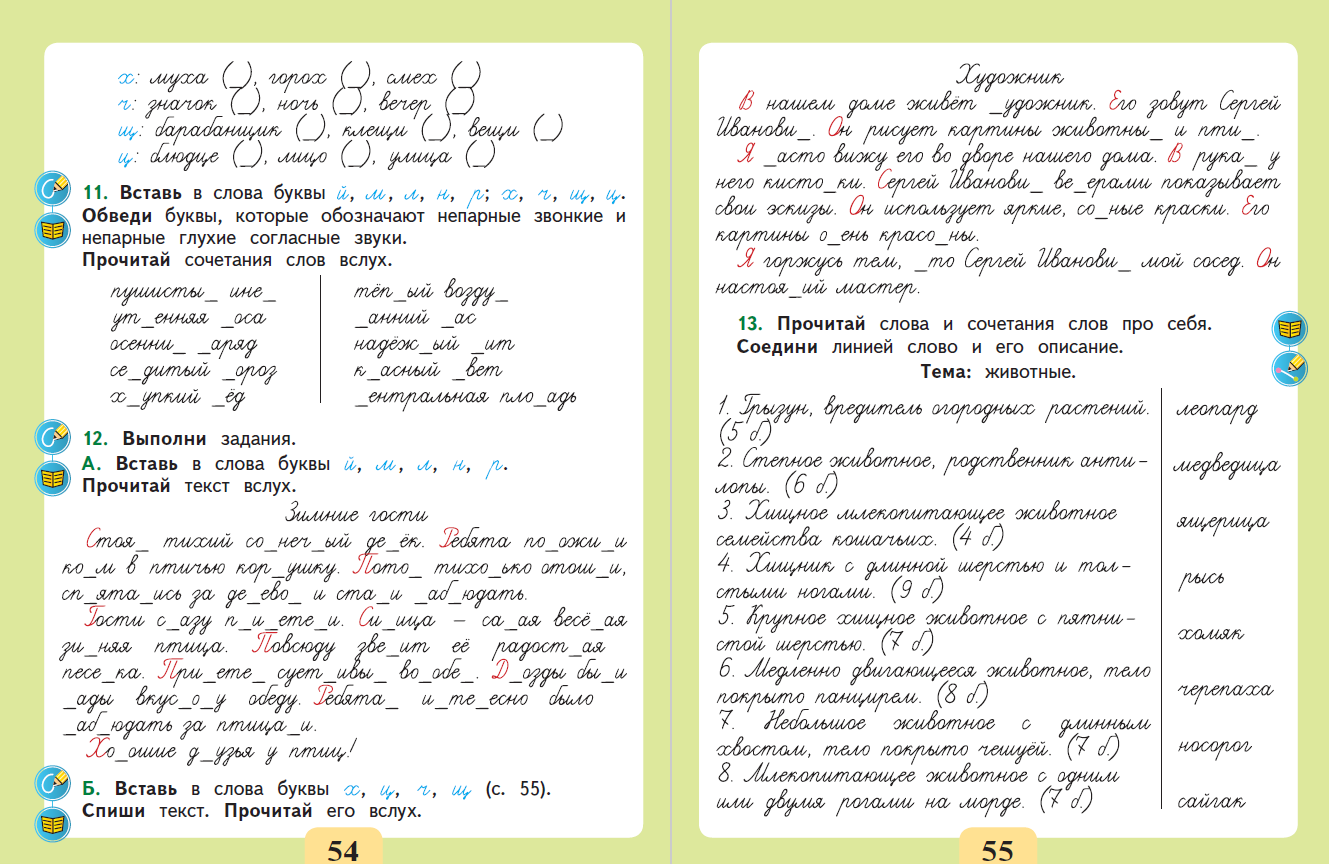 х: муха (_), горох (_), смех (_)
ч: значок (_), ночь (_), вечер (_)
щ: барабанщик (_), клещи (_), вещи (_)
ц: блюдце (_), лицо (_), улица (_)
11. Вставь в слова буквы й, м, л, н, р; х, ч, щ, ц.
Обведи буквы, которые обозначают непарные звонкие и
непарные глухие согласные звуки.
Прочитай сочетания слов вслух.
пушисты_ ине_
ут_енняя _оса
осенни_ _аряд
се_дитый _ороз
х_упкий _ёд
тёп_ый возду_
_анний _ас
надёж_ый _ит
к_асный _вет
_ентральная пло_адь
12. Выполни задания.
А. Вставь в слова буквы й, м, л, н, р.
Прочитай текст вслух.
Зимние гости
Стоя_ тихий со_неч_ый де_ёк. Ребята по_ожи_и
ко_м в птичью кор_ушку. Пото_ тихо_ько отош_и,
сп_ята_ись за де_ево_ и ста_и _аб_юдать.
Гости с_азу п_и_ете_и. Си_ица – са_ая весё_ая
зи_няя птица. Повсюду зве_ит её радост_ая
песе_ка. При_ете_ сует_ивы_ во_обе_. Д_озды бы_и
_ады вкус_о_у обеду. Ребята_ и_те_есно было
_аб_юдать за птица_и.
Хо_ошие д_узья у птиц!
Б. Вставь в слова буквы х, ц, ч, щ (с. 55).
Спиши текст. Прочитай его вслух.
54
Художник
В нашем доме живёт _удожник. Его зовут Сергей
Иванови_. Он рисует картины животны_ и пти_.
Я _асто вижу его во дворе нашего дома. В рука_ у
него кисто_ки. Сергей Иванови_ ве_ерами показывает
свои эскизы. Он использует яркие, со_ные краски. Его
картины о_ень красо_ны.
Я горжусь тем, _то Сергей Иванови_ мой сосед. Он
настоя_ий мастер.
13. Прочитай слова и сочетания слов про себя.
Соедини линией слово и его описание.
Тема: животные.
1. Грызун, вредитель огородных растений.
(5 б.)
2. Степное животное, родственник анти-
лопы. (6 б.)
3. Хищное млекопитающее животное
семейства кошачьих. (4 б.)
4. Хищник с длинной шерстью и тол-
стыми ногами. (9 б.)
5. Крупное хищное животное с пятни-
стой шерстью. (7 б.)
6. Медленно двигающееся животное, тело
покрыто панцирем. (8 б.)
7. Небольшое животное с длинным
хвостом, тело покрыто чешуёй. (7 б.)
8. Млекопитающее животное с одним
или двумя рогами на морде. (7 б.)
леопард
медведица
ящерица
рысь
хомяк
черепаха
носорог
сайгак
55